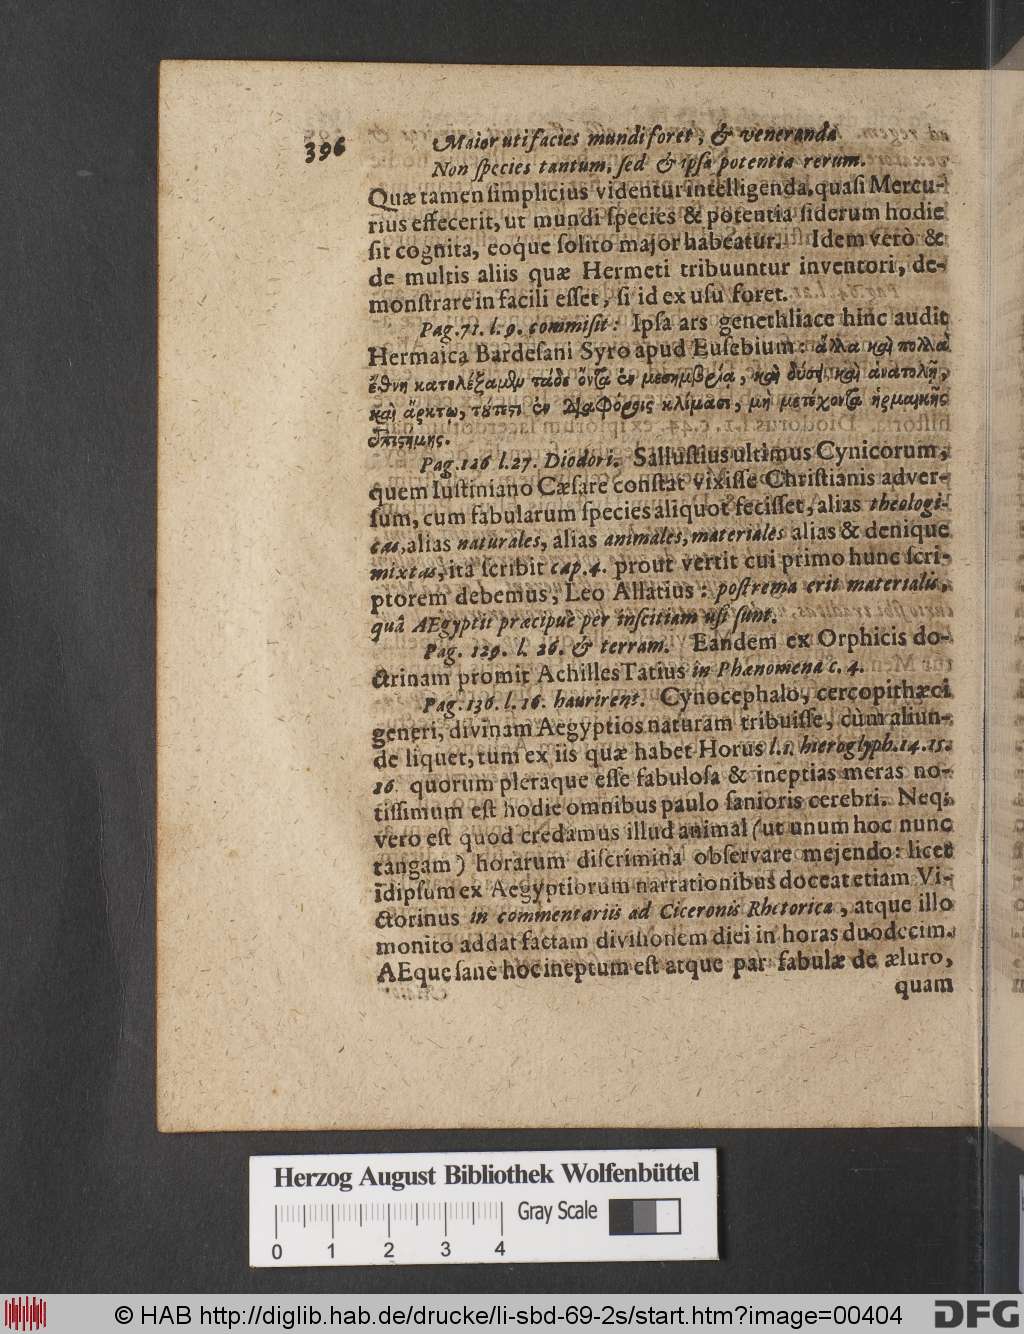 396
Maior uti facies mundi foret, & veneranda
Non species tantum, sed & ipsa potentia rerum.
Quæ tamen simplicius videntur intelligenda, quasi Mercu-
rius effecerit, ut mundi species & potentia siderum hodie
sit cognita, eoque solito major habeatur. Idem verò &
de multis aliis quæ Hermeti tribuuntur inventori, de-
monstrare in facili esset, si id ex usu foret.
Pag. 71. l. 9. commisit: Ipsa ars genethliace hinc audit
Hermaica Bardesani Syro apud Eusebium: ἀλλα καὶ πολλὰ
ἔθνη κατελέξαμην τάδε ὄντα ἐν μεσημβρία, καὶ δύση καὶ ἀνατολῇ,
καὶ ἄρκτω, τύπεσι ἐν διαφόροις κλίμασι, μὴ μετέχοντα ἑρμαικῆς
ἐπιστήμης.
Pag. 126 l. 27. Diodori. Sallustius ultimus Cynicorum,
quem Iustiniano Cæsare constat vixisse Christianis adver-
sum, cum fabularum species aliquot fecisset, alias theologi-
cas, alias naturales, alias animales, materiales alias & denique
mixtas, ita scribit cap. 4. prout vertit cui primo hunc scri-
ptorem debemus, Leo Allatius: postrema erit materialis,
quâ AEgyptii præcipuè per inscitiam usi sunt.
Pag. 129. l. 26. & terram. Eandem ex Orphicis do-
ctrinam promit Achilles Tatius in Phænomena c. 4.
Pag. 136. l. 16. haurirent. Cynocephalo, cercopithæci
generi, divinam Aegyptios naturam tribuisse, cùm aliun-
de liquet, tum ex iis quæ habet Horus l. 1. hieroglyph. 14. 15.
16. quorum pleraque esse fabulosa & ineptias meras no-
tissimum est hodie omnibus paulo sanioris cerebri. Neq;
vero est quod credamus illud animal (ut unum hoc nunc
tangam) horarum discrimina observare mejendo: licet
idipsum ex Aegyptiorum narrationibus doceat etiam Vi-
ctorinus in commentariis ad Ciceronis Rhetorica, atque illo
monito addat factam divisionem diei in horas duodecim.
AEque sanè hoc ineptum est atque par fabulæ de æluro,
quam
Herzog August Bibliothek Wolfenbüttel
Gray Scale
0 1 2 3 4
© HAB http://diglib.hab.de/drucke/li-sbd-69-2s/start.htm?image=00404
DFG